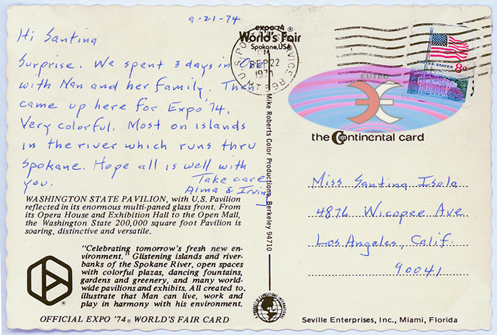 9-21-74
Hi Santina
Surprise. We spent 3 days in
with Nan and her family. They
came up here for Expo '74.
Very colorful. Most on islands
in the river which runs thru
Spokane. Hope all is well with
you.
Take care
Alma & Irving
WASHINGTON STATE PAVILION, with U.S. Pavilion
reflected in its enormous multi-paned glass front. From
its Opera House and Exhibition Hall to the Open Mall,
the Washington State 200,000 square foot Pavilion is
soaring, distinctive and versatile.
"Celebrating tomorrow's fresh new en-
vironment." Glistening islands and river-
banks of the Spokane River, open spaces
with colorful plazas, dancing fountains,
gardens and greenery, and many world-
wide pavilions and exhibits. All created to,
illustrate that Man can live, work and
play in harmony with his environment.
OFFICIAL EXPO '74® WORLD'S FAIR CARD
expo '74®
World's Fair
Spokane, USA
SEP 22
Mike Roberts Color Productions, Berkeley 94710
the Continental card
Miss Santina Isolo
4876 Wicopee Ave
Los Angeles, Calif.
90041
Seville Enterprises, Inc., Miami, Florida